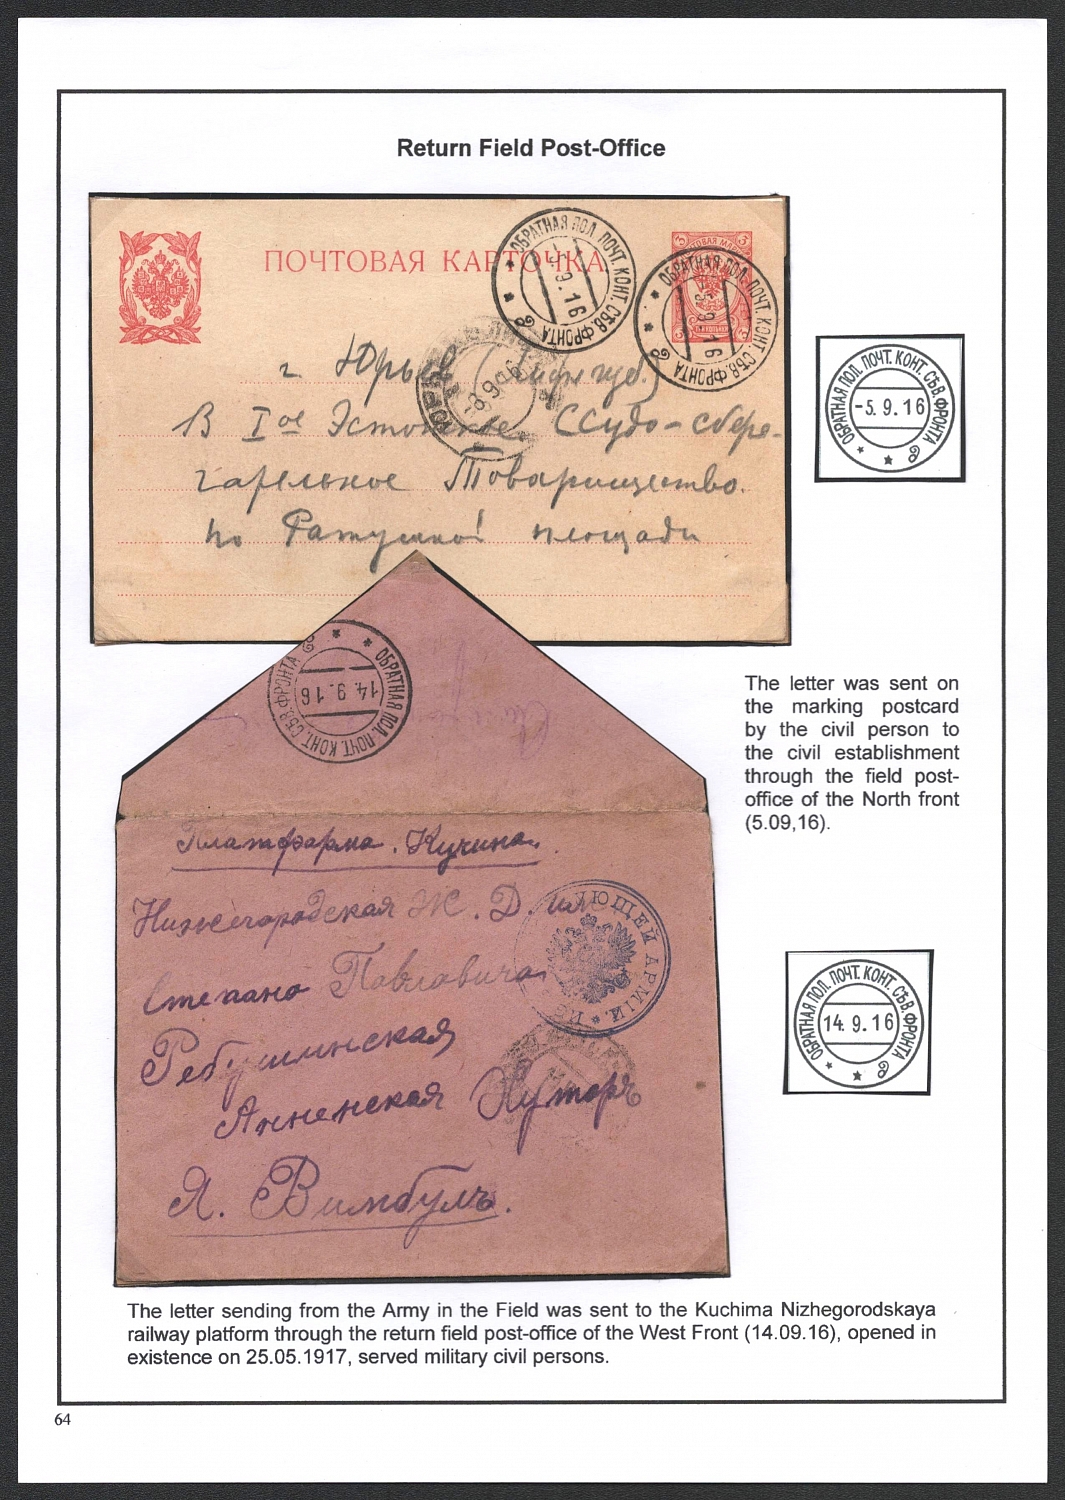 Return Field Post-Office
ПОЧТОВАЯ КАРТОЧКА
ОБРАТНАЯ ПОЛ. ПОЧТ. КОНТ. СѢВ. ФРОНТА
-5.9.16
ОБРАТНАЯ ПОЛ. ПОЧТ. КОНТ. СѢВ. ФРОНТА
-5.9.16
3 3
8 9 16
г. Юрьев (Лифл. губ.)
В Iое Эстонское Ссудо-сбере-
гательное Товарищество.
по Ратушной площади
ОБРАТНАЯ ПОЛ. ПОЧТ. КОНТ. СѢВ. ФРОНТА
-5.9.16
ОБРАТНАЯ ПОЛ. ПОЧТ. КОНТ. СѢВ. ФРОНТА
14.9.16
The letter was sent on
the marking postcard
by the civil person to
the civil establishment
through the field post-
office of the North front
(5.09,16).
Платформа. Кучина.
Нижегородская Ж. Д. им
Степана Павловича
Рябушинская
Анненская Хуторъ
Я. Вимбулъ.
ЮЩЕЙ АРМІИ.
ОБРАТНАЯ ПОЛ. ПОЧТ. КОНТ. СѢВ. ФРОНТА
14.9.16
The letter sending from the Army in the Field was sent to the Kuchima Nizhegorodskaya
railway platform through the return field post-office of the West Front (14.09.16), opened in
existence on 25.05.1917, served military civil persons.
64